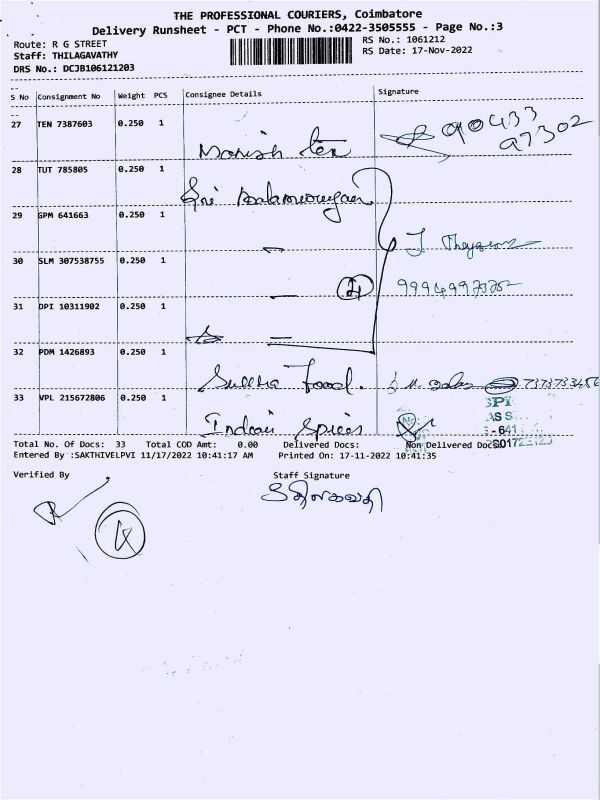 THE PROFESSIONAL COURIERS, Coimbatore
Delivery Runsheet - PCT - Phone No.:0422-3505555 - Page No.:3
Route: R G STREET
RS No.: 1061212
Staff: THILAGAVATHY
RS Date: 17-Nov-2022
DRS No.: DCJB106121203
S No Consignment No Weight PCS Consignee Details Signature
27 TEN 7387603 0.250 1
90433
97302
28 TUT 785805 0.250 1
Sri Balamurugan
29 GPM 641663 0.250 1
30 SLM 307538755 0.250 1
4
31 DPI 10311902 0.250 1
32 PDM 1426893 0.250 1
Food.
7373733456
33 VPL 215672806 0.250 1
Indian Spices
Total No. Of Docs: 33 Total COD Amt: 0.00 Delivered Docs: Non Delivered Docs:
Entered By :SAKTHIVELPVI 11/17/2022 10:41:17 AM Printed On: 17-11-2022 10:41:35
Verified By Staff Signature